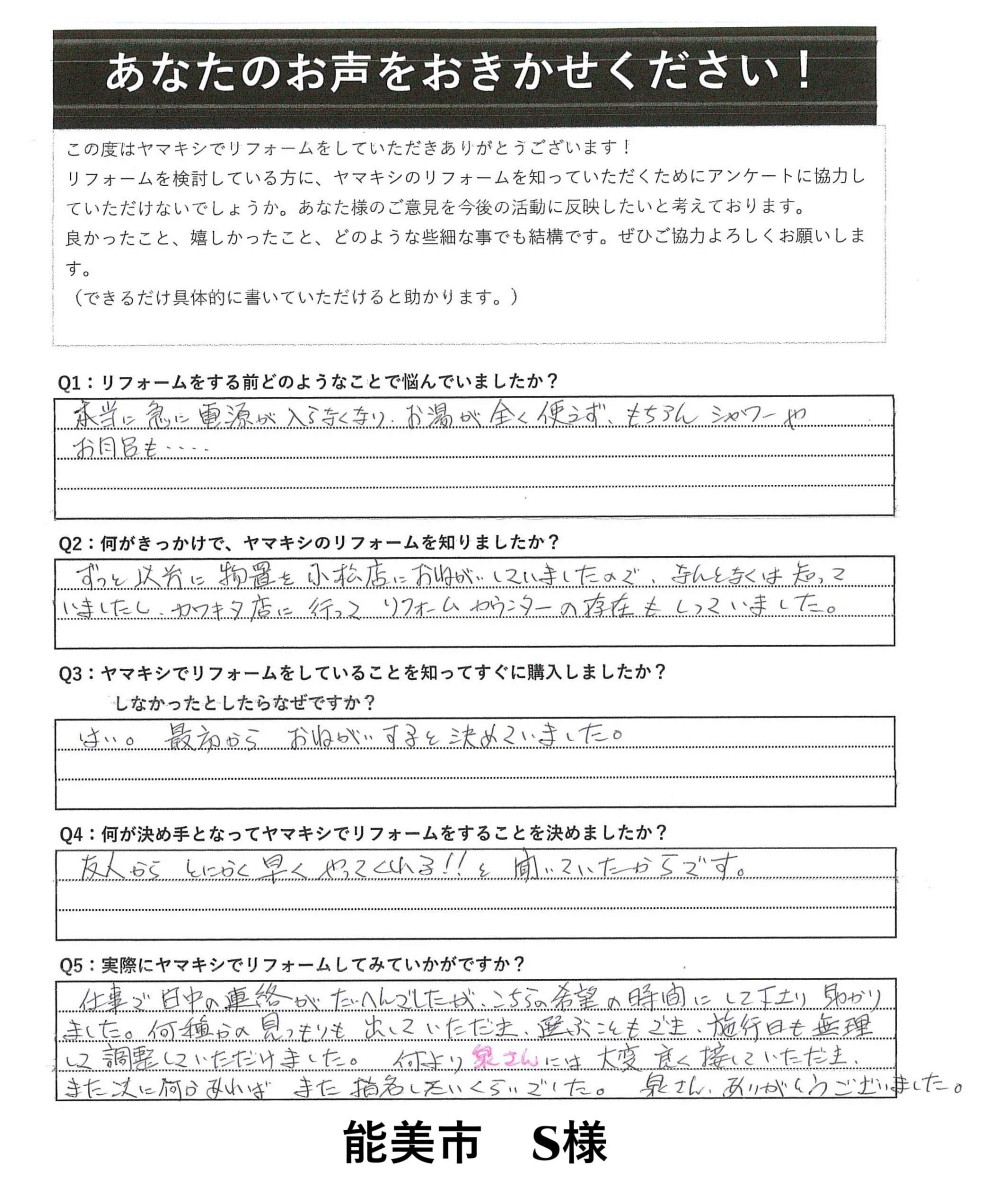 あなたのお声をおきかせください！
この度はヤマキシでリフォームをしていただきありがとうございます！
リフォームを検討している方に、ヤマキシのリフォームを知っていただくためにアンケートに協力し
ていただけないでしょうか。あなた様のご意見を今後の活動に反映したいと考えております。
良かったこと、嬉しかったこと、どのような些細な事でも結構です。ぜひご協力よろしくお願いしま
す。
（できるだけ具体的に書いていただけると助かります。）
Q1：リフォームをする前どのようなことで悩んでいましたか？
本当に急に電源が入らなくなり、お湯が全く使えず、もちろんシャワーや
お風呂も・・・・
Q2：何がきっかけで、ヤマキシのリフォームを知りましたか？
ずっと以前に物置を小松店におねがいしていましたので、なんとなくは知って
いましたし、カワキタ店に行ってリフォームカウンターの存在もしっていました。
Q3：ヤマキシでリフォームをしていることを知ってすぐに購入しましたか？
しなかったとしたらなぜですか？
はい。最初からおねがいすると決めていました。
Q4：何が決め手となってヤマキシでリフォームをすることを決めましたか？
友人からとにかく早くやってくれる!!と聞いていたからです。
Q5：実際にヤマキシでリフォームしてみていかがですか？
仕事で日中の連絡がたいへんでしたが、こちらの希望の時間にして下さり助かり
ました。何種かの見つもりも出していただき、選ぶこともでき、施行日も無理
して調整していただけました。何より泉さんには大変良く接していただき、
また次に何かあればまた指名したいくらいでした。泉さん、ありがとうございました。
能美市　S様